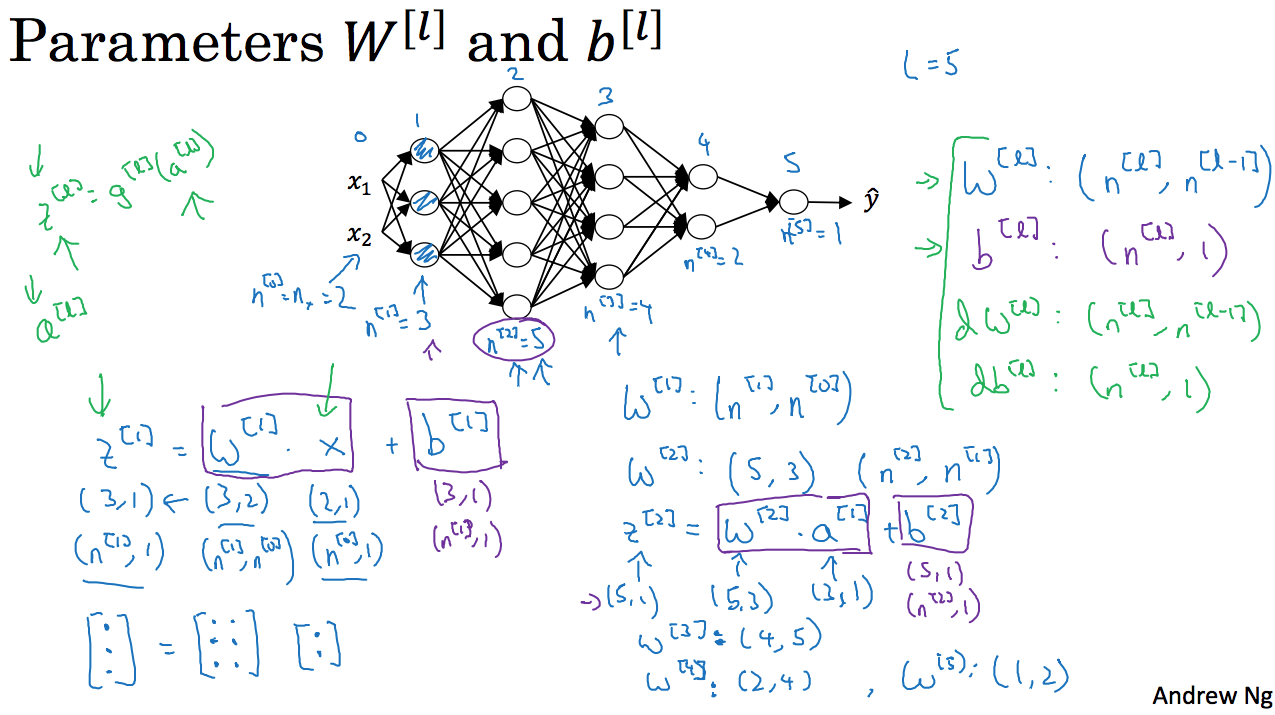 Parameters W^[l] and b^[l]
L = 5
0 1 2 3 4 5
x₁
x₂
ŷ
z^[l] = g^[l](a^[l])
a^[l]
n^[0] = nₓ = 2
n^[1] = 3
n^[2] = 5
n^[3] = 4
n^[4] = 2
n^[5] = 1
→ W^[l] : (n^[l], n^[l-1])
→ b^[l] : (n^[l], 1)
dW^[l] : (n^[l], n^[l-1])
db^[l] : (n^[l], 1)
z^[1] = W^[1] · x + b^[1]
(3,1) ← (3,2) (2,1) (3,1)
(n^[1],1) (n^[1],n^[0]) (n^[0],1) (n^[1],1)
=
W^[1] : (n^[1], n^[0])
W^[2] : (5,3) (n^[2], n^[1])
z^[2] = W^[2] · a^[1] + b^[2]
→ (5,1) (5,3) (3,1) (5,1)
(n^[2],1)
W^[3] : (4,5)
W^[4] : (2,4) , W^[5] : (1,2)
Andrew Ng